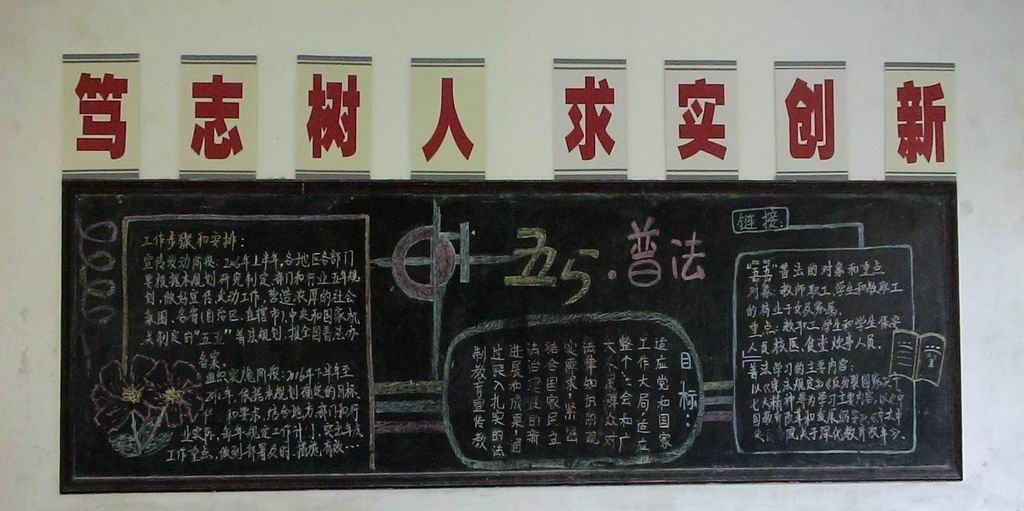 笃志树人 求实创新
五五·普法
工作步骤和安排:
宣传发动阶段:2006年上半年,各地区各部门
要根据本规划,研究制定本部门和行业五年规
划,做好宣传发动工作,营造浓厚的社会
氛围。各省(自治区、直辖市)、中央和国家机
关制定的"五五"普法规划,报全国普法办
备案。
组织实施阶段:2006年下半年至
年,依据本规划确定的目标、
和要求,结合地方部门和行
业实际,每年制定工作计划,突出年度
工作重点,做到部署及时、措施有效…
目标:
适应党和国家
工作大局,适应
整个社会和广
大人民群众对
法律知识的现
实需求,紧密
结合国家民主
法治建设的新
进展和成果,通
过深入扎实的法
制教育宣传教
链接:
"五五"普法的对象和重点
对象:教师职工、学生和教职工
的待业子女及家属。
重点:教职工、学生和学生保安
人员、校医、食堂炊事人员。
普法学习的主要内容: